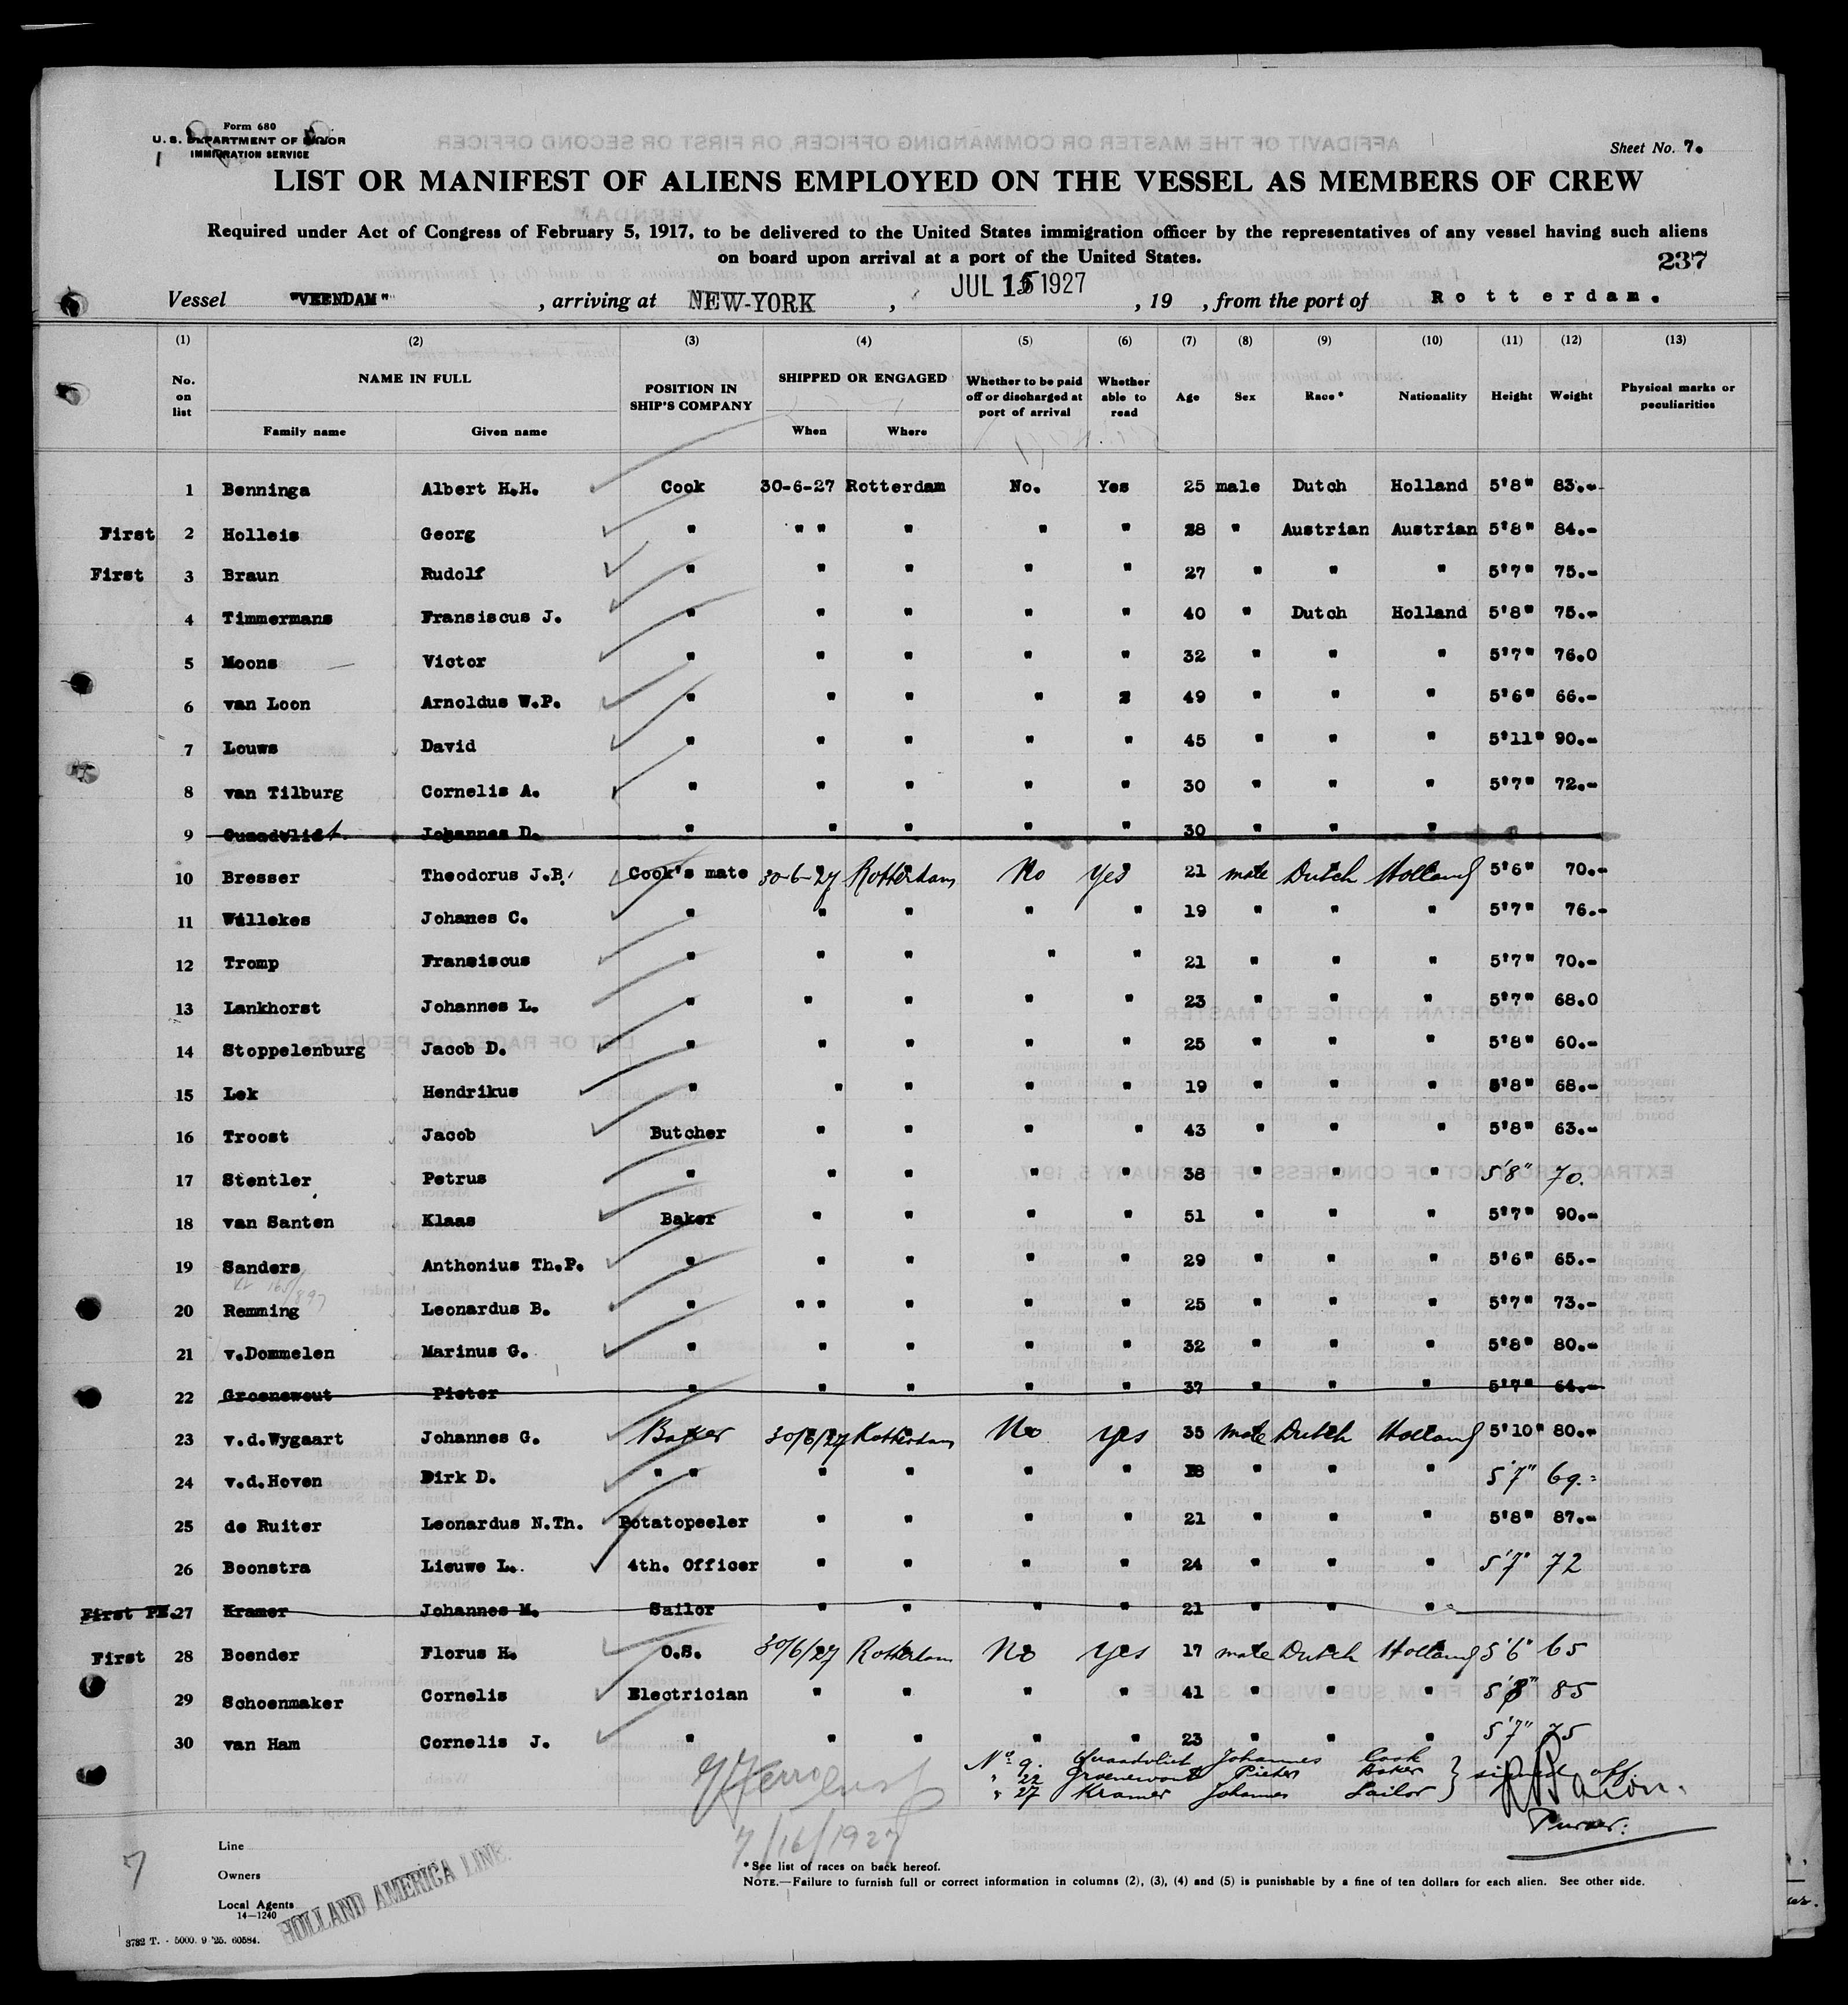 Form 680
U. S. DEPARTMENT OF LABOR
IMMIGRATION SERVICE
Sheet No. 7.
LIST OR MANIFEST OF ALIENS EMPLOYED ON THE VESSEL AS MEMBERS OF CREW
Required under Act of Congress of February 5, 1917, to be delivered to the United States immigration officer by the representatives of any vessel having such aliens
on board upon arrival at a port of the United States.
237
Vessel "VEENDAM", arriving at NEW-YORK, JUL 15 1927, 19 , from the port of Rotterdam.
(1) (2) (3) (4) (5) (6) (7) (8) (9) (10) (11) (12) (13)
No. on list NAME IN FULL Family name Given name POSITION IN SHIP'S COMPANY SHIPPED OR ENGAGED When Where Whether to be paid off or discharged at port of arrival Whether able to read Age Sex Race* Nationality Height Weight Physical marks or peculiarities
1 Benninga Albert H.H. Cook 30-6-27 Rotterdam No. Yes 25 male Dutch Holland 5'8" 83.-
First 2 Holleis Georg " " " " " " 28 " Austrian Austrian 5'8" 84.-
First 3 Braun Rudolf " " " " " 27 " " " 5'7" 75.-
4 Timmermans Fransiscus J. " " " " " 40 " Dutch Holland 5'8" 75.-
5 Moons Victor " " " " " 32 " " " 5'7" 76.0
6 van Loon Arnoldus W.P. " " " " " 49 " " " 5'6" 66.-
7 Louws David " " " " " 45 " " " 5'11" 90.-
8 van Tilburg Cornelis A. " " " " " 30 " " " 5'7" 72.-
9 Quaadvliet Johannes D. " " " " " 30 " " "
10 Bresser Theodorus J.B. Cook's mate 30-6-27 Rotterdam No Yes 21 male Dutch Holland 5'6" 70.-
11 Willekes Johanes C. " " " " " 19 " " " 5'7" 76.-
12 Tromp Fransiscus " " " " " 21 " " " 5'7" 70.-
13 Lankhorst Johannes L. " " " " " 23 " " " 5'7" 68.0
14 Stoppelenburg Jacob D. " " " " " 25 " " " 5'8" 60.-
15 Lek Hendrikus " " " " " 19 " " " 5'8" 68.-
16 Troost Jacob Butcher " " " " 43 " " " 5'8" 63.-
17 Stentler Petrus " " " " " 38 " " " 5'8" 70.
18 van Santen Klaas Baker " " " " 51 " " " 5'7" 90.-
19 Sanders Anthonius Th.P. " " " " " 29 " " " 5'6" 65.-
20 Remming Leonardus B. " " " " " " 25 " " " 5'7" 73.-
21 v.Dommelen Marinus G. " " " " " 32 " " " 5'8" 80.-
22 Groenewout Pieter " " " " " 37 " " " 5'7" 64.-
23 v.d.Wygaart Johannes G. Baker 30/6/27 Rotterdam No Yes 35 male Dutch Holland 5'10" 80.-
24 v.d.Hoven Dirk D. " " " " " " " " " 5'7" 69.-
25 de Ruiter Leonardus N.Th. Potatopeeler " " " " 21 " " " 5'8" 87.-
26 Boonstra Lieuwe L. 4th. Officer " " " " 24 " " " 5'7" 72
First 27 Kramer Johannes M. Sailor " " " " 21 " " "
First 28 Boender Florus H. O.S. 30/6/27 Rotterdam No Yes 17 male Dutch Holland 5'6" 65
29 Schoenmaker Cornelis Electrician " " " " 41 " " " 5'8" 85
30 van Ham Cornelis J. " " " " " 23 " " " 5'7" 75
No. 9. Quaadvliet Johannes Cook
" 22 Groenewout Pieter Baker } signed off
" 27 Kramer Johannes Sailor
Purser.
7/16/1927
7
Line
Owners
Local Agents
HOLLAND AMERICA LINE.
14—1240
* See list of races on back hereof.
NOTE.—Failure to furnish full or correct information in columns (2), (3), (4) and (5) is punishable by a fine of ten dollars for each alien. See other side.
3782 T. - 5000. 9 '25. 60584.